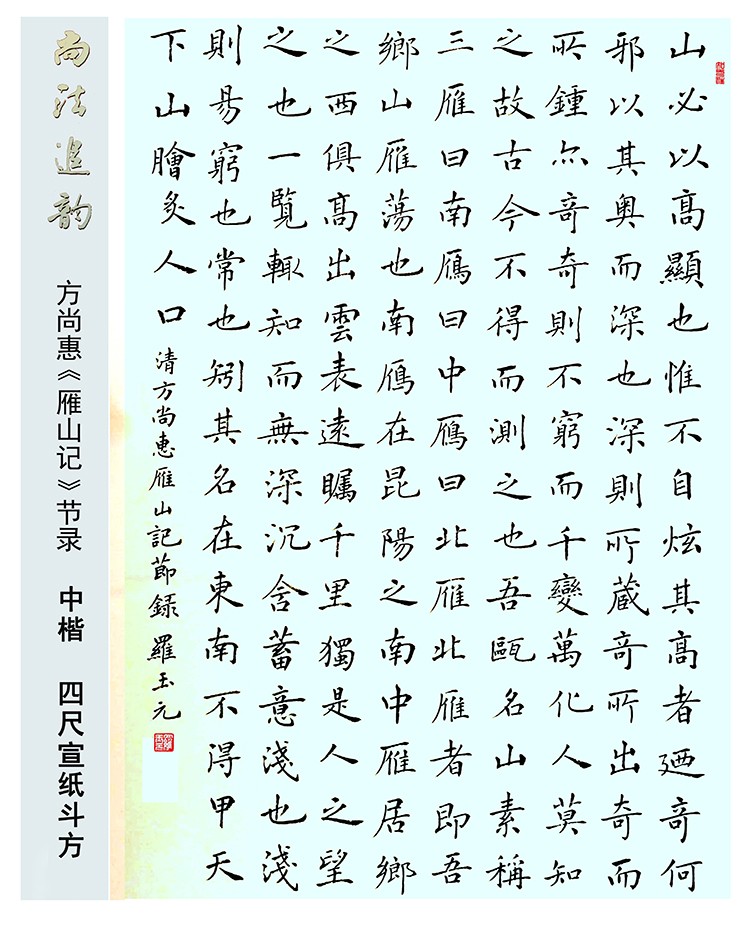 山必以髙顯也惟不自炫其髙者廼竒何
邪以其奥而深也深則所蔵竒所出奇而
所鍾尓竒奇則不窮而千變萬化人莫知
之故古今不得而測之也吾甌名山素稱
三雁曰南鴈曰中鴈曰北雁北雁者即吾
鄉山雁蕩也南鴈在昆陽之南中雁居鄉
之西俱髙出雲表遠矚千里獨是人之望
之也一覽輙知而無深沉含蓄意淺也淺
則易窮也常也矧其名在東南不得甲天
下山膾炙人口
清方尚惠雁山記節録 羅玉元
尚法追韵
方尚惠《雁山记》节录 中楷 四尺宣纸斗方